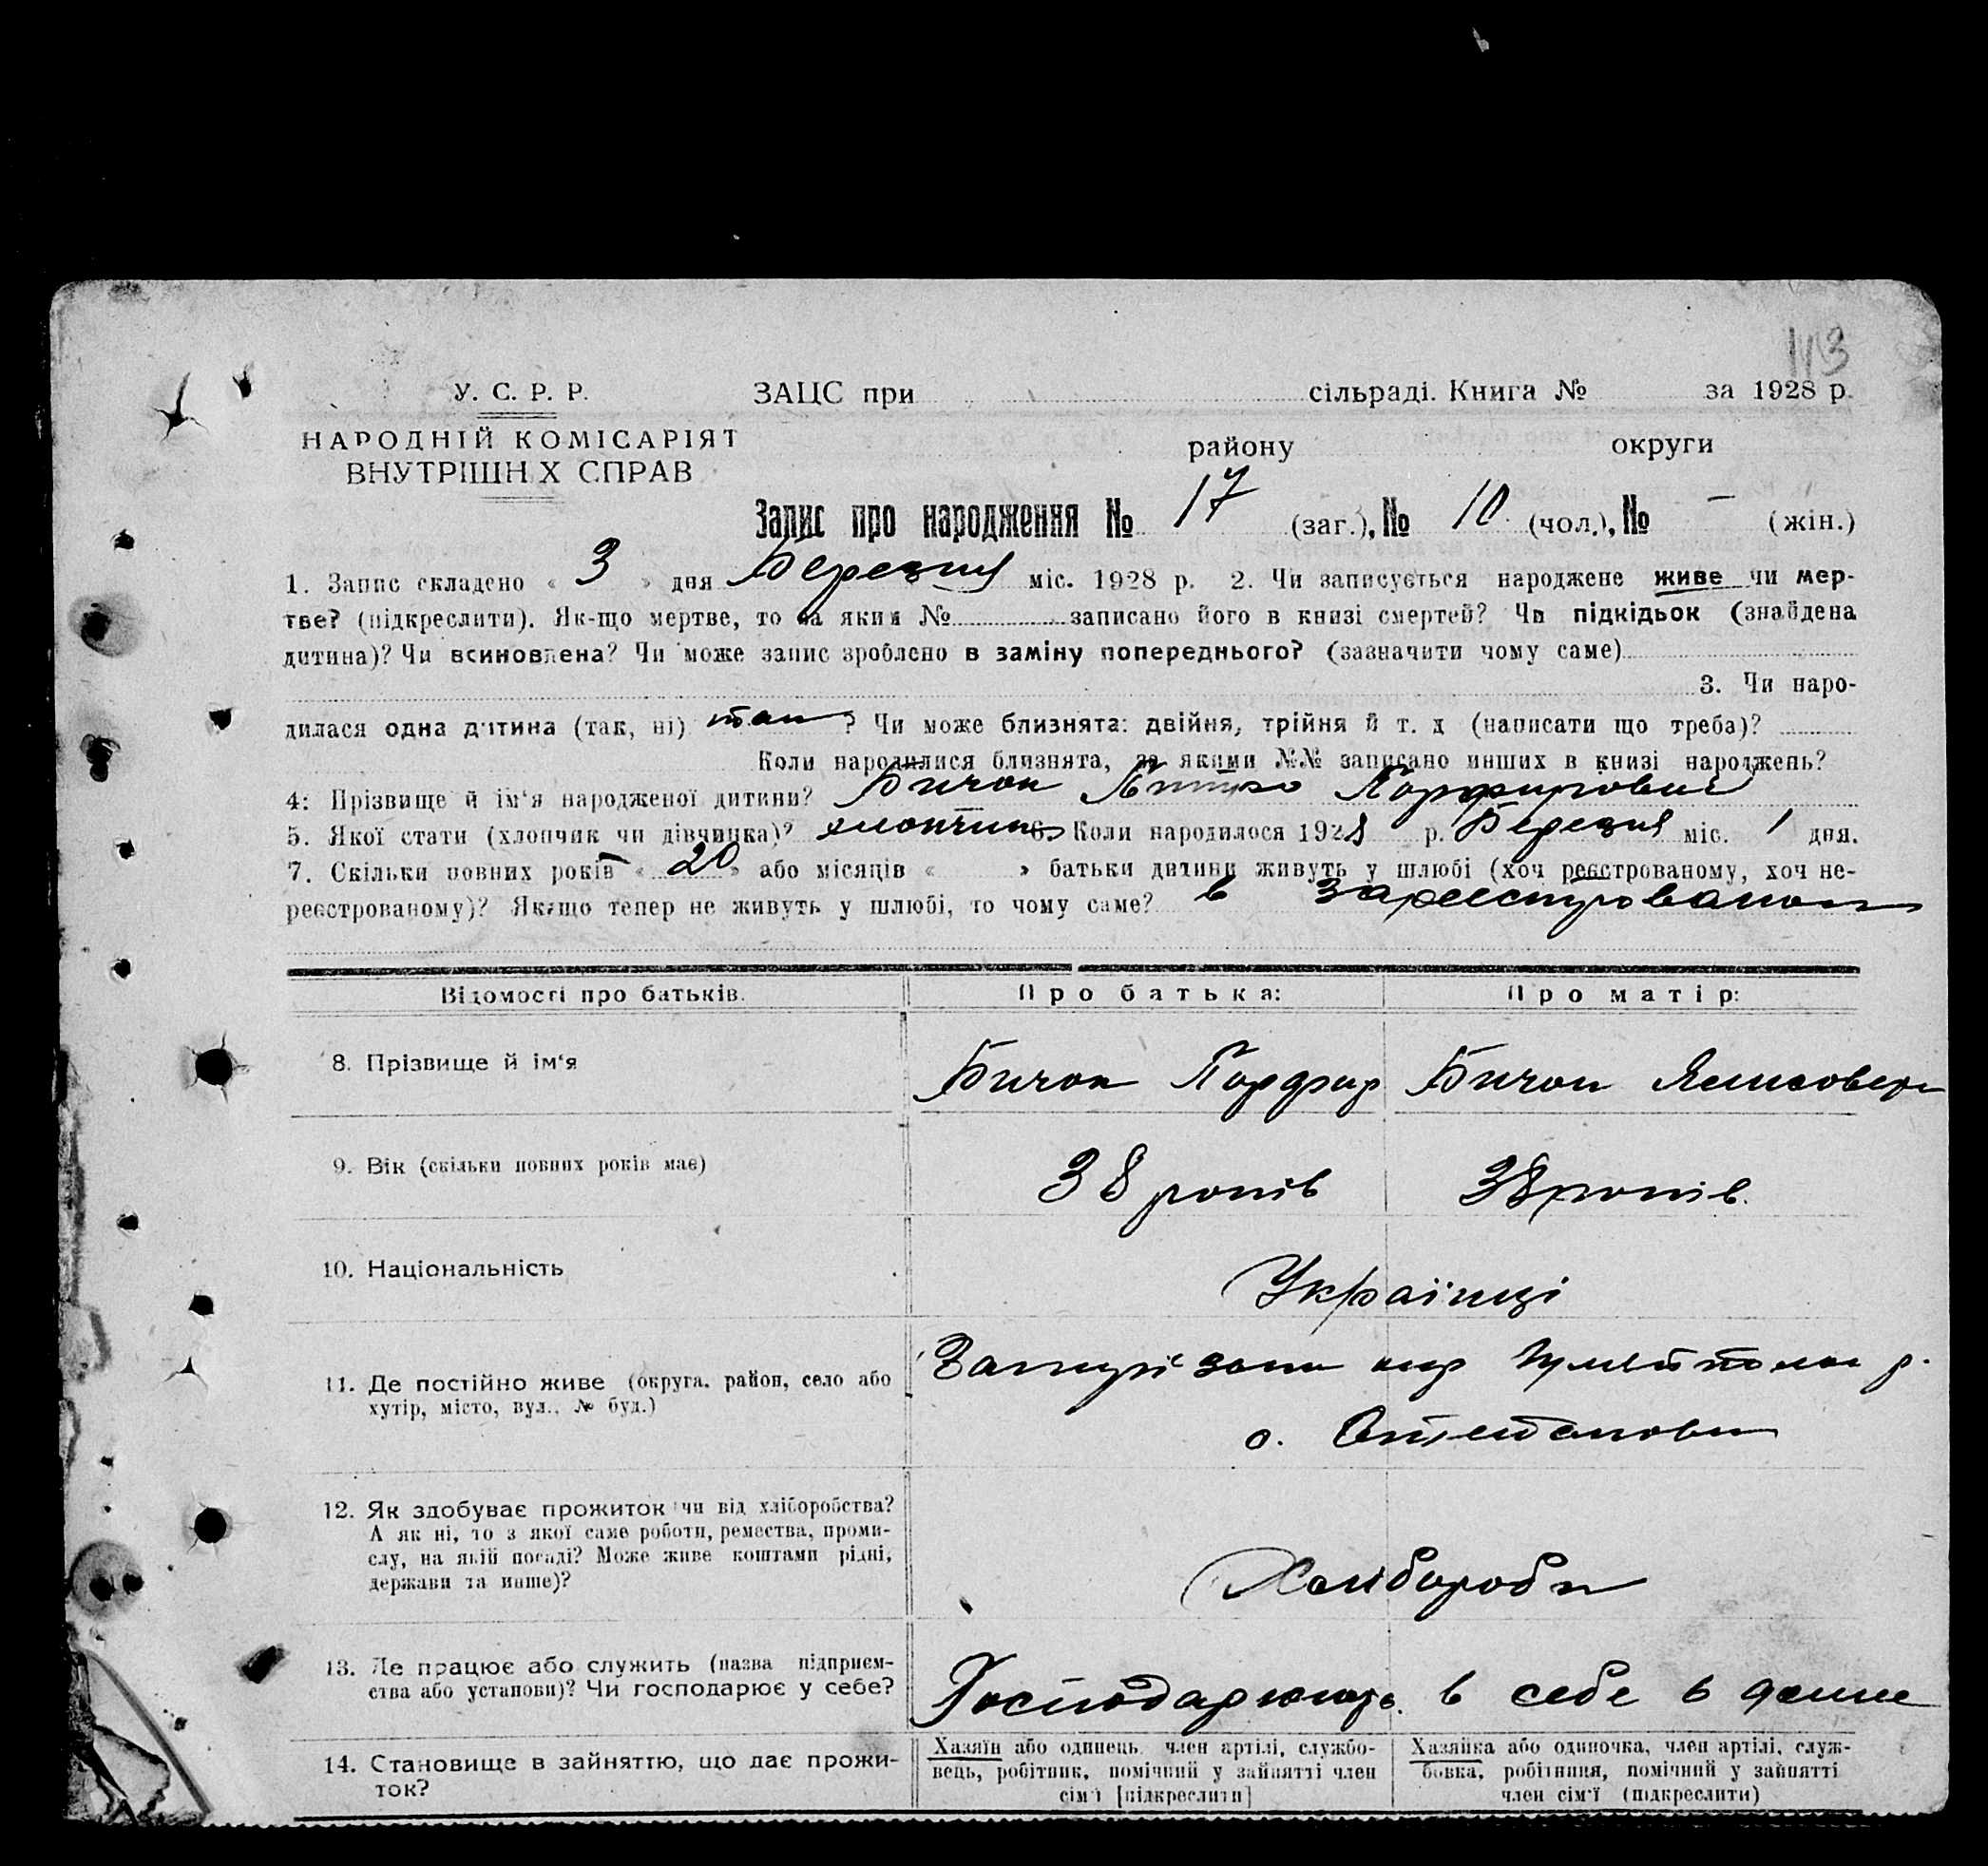 113
У. С. Р. Р. ЗАЦС при сільраді. Книга № за 1928 р.
НАРОДНІЙ КОМІСАРІЯТ
району округи
ВНУТРІШН Х СПРАВ
Запис про народження № 17 (заг.), № 10 (чол.), № – (жін.)
1. Запис складено « 3 » дня Березня міс. 1928 р. 2. Чи записується народжене живе чи мер-
тве? (підкреслити). Як-що мертве, то за яким № записано його в книзі смертей? Чи підкідьок (знайдена
дитина)? Чи всиновлена? Чи може запис зроблено в заміну попереднього? (зазначити чому саме)
3. Чи наро-
дилася одна дитина (так, ні) так ? Чи може близнята: двійня, трійня й т. д (написати що треба)?
Коли народилися близнята, за якими №№ записано инших в книзі народжень?
4: Прізвище й ім'я народженої дитини? Бичок Порфирович
5. Якої стати (хлопчик чи дівчинка)? хлопчик 6. Коли народилося 1928 р. Березня міс. 1 дня.
7. Скільки повних років « 20 » або місяців « » батьки дитини живуть у шлюбі (хоч реєстрованому, хоч не-
реєстрованому)? Якщо тепер не живуть у шлюбі, то чому саме? в зареєстрованом
Відомості про батьків. Про батька: Про матір:
8. Прізвище й ім'я Бичок Порфир Бичок
9. Вік (скільки повних років має) 38 років 38 років.
10. Національність Українці
11. Де постійно живе (округа, район, село або
хутір, місто, вул., № буд.)
р.
с.
12. Як здобуває прожиток чи від хліборобства?
А як ні, то з якої саме роботи, ремества, проми-
слу, на якій посаді? Може живе коштами рідні,
держави та инше)?
Хлібороби
13. Де працює або служить (назва підприєм-
ства або установи)? Чи господарює у себе?
Господарюють в себе в
14. Становище в зайняттю, що дає прожи-
ток?
Хазяїн або одинець, член артілі, службо-
вець, робітник, помічний у зайнятті член
сім'ї [підкреслити]
Хазяйка або одиночка, член артілі, служ-
бовка, робітниця, помічний у зайнятті
член сім'ї (підкреслити)